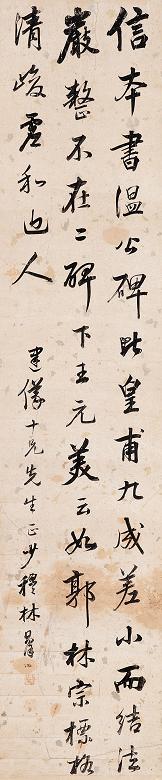 信本書温公碑比皇甫九成差小而結法
嚴整不在二碑下王元美云如郭林宗標格
清峻虛和近人
建侯十兄先生正少穆林則徐